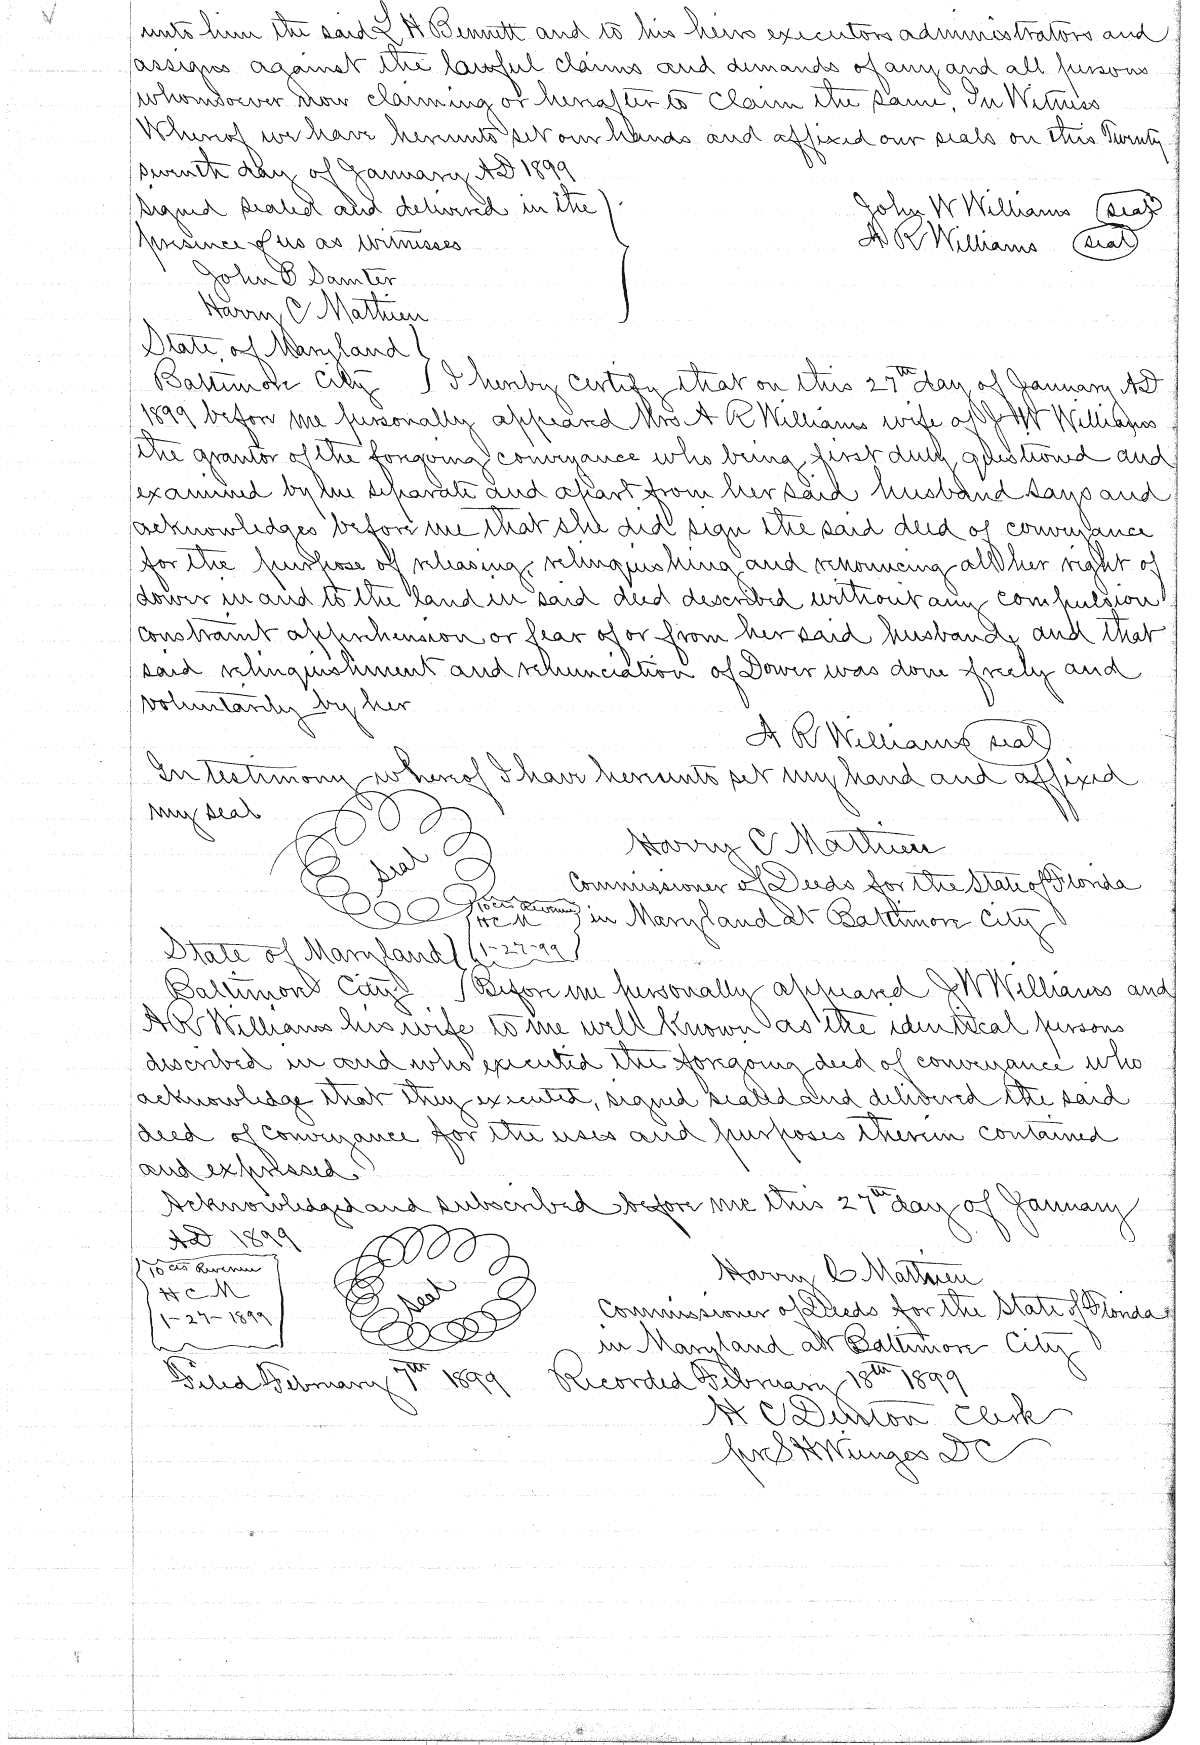 unto him the said L H Bennett and to his heirs executors administrators and
assigns against the lawful claims and demands of any and all persons
whomsoever now claiming or hereafter to claim the same, In Witness
Whereof we have hereunto set our hands and affixed our seals on this Twenty
seventh day of January AD 1899
signed sealed and delivered in the
presence of us as witnesses
John W Williams (seal)
A R Williams (seal)
John P Samter
Harry C Mathieu
State of Maryland
Baltimore City I hereby certify that on this 27th day of January AD
1899 before me personally appeared Mrs A R Williams wife of J W Williams
the grantor of the foregoing conveyance who being first duly questioned and
examined by me separate and apart from her said husband says and
acknowledges before me that she did sign the said deed of conveyance
for the purpose of releasing, relinquishing and renouncing all her right of
dower in and to the land in said deed described without any compulsion
constraint apprehension or fear of or from her said husband, and that
said relinquishment and renunciation of Dower was done freely and
voluntarily by her
A R Williams (seal)
In testimony whereof I have hereunto set my hand and affixed
my seal
seal
Harry C Mathieu
Commissioner of Deeds for the State of Florida
in Maryland at Baltimore City
10 cts Revenue
H C M
1-27-99
State of Maryland
Baltimore City Before me personally appeared J W Williams and
A R Williams his wife to me well known as the identical persons
described in and who executed the foregoing deed of conveyance who
acknowledge that they executed, signed sealed and delivered the said
deed of conveyance for the uses and purposes therein contained
and expressed.
Acknowledged and subscribed before me this 27th day of January
AD 1899
10 cts Revenue
H C M
1-27-1899
seal
Harry C Mathieu
Commissioner of Deeds for the State of Florida
in Maryland at Baltimore City
Filed February 7th 1899 Recorded February 18th 1899
H C Duston Clerk
per S H DC